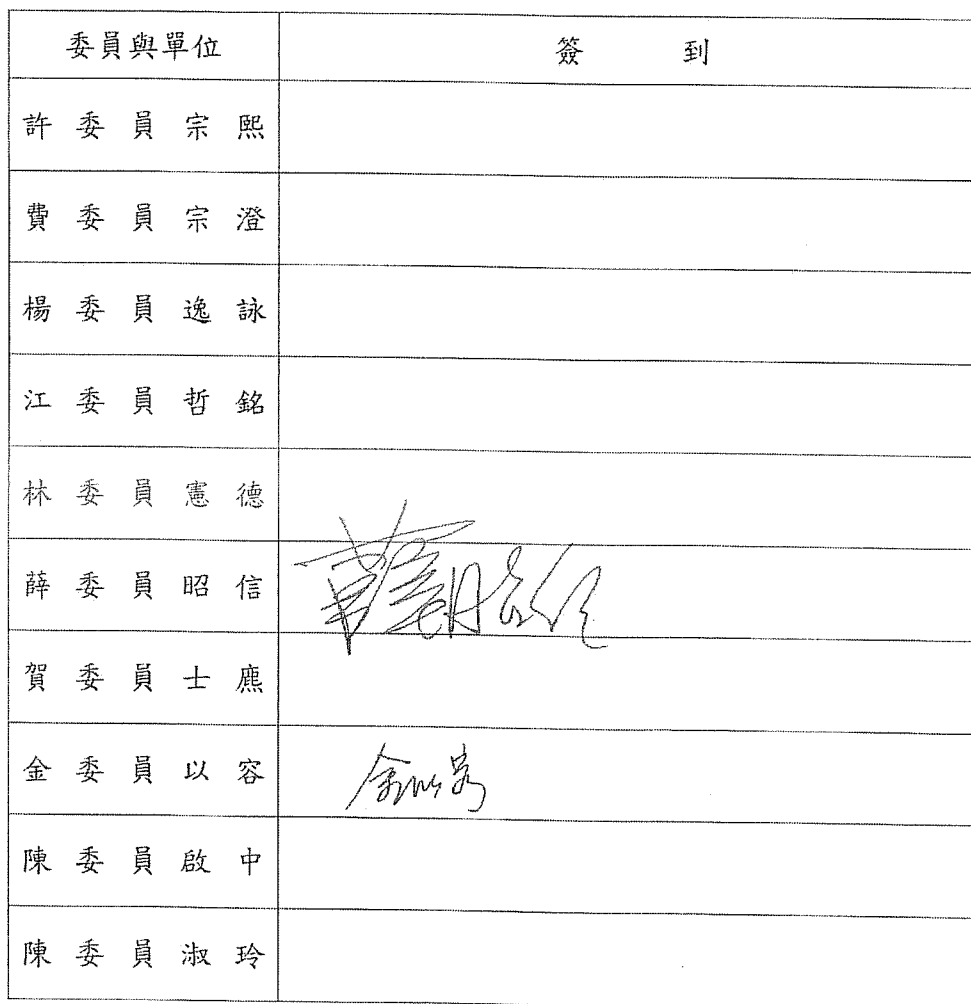 委員與單位 簽到
許委員宗熙
費委員宗澄
楊委員逸詠
江委員哲銘
林委員憲德
薛委員昭信 薛昭信
賀委員士麃
金委員以容 金以容
陳委員啟中
陳委員淑玲